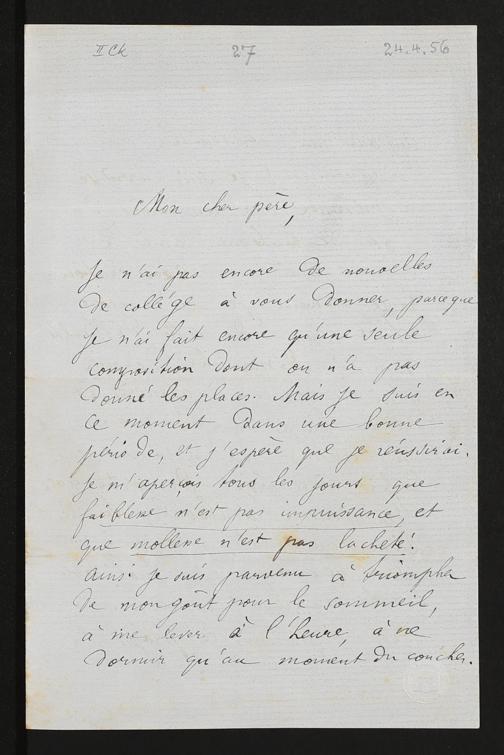 II Ck 27 24.4.56
Mon cher père,
Je n'ai pas encore de nouvelles
de collége à vous donner, parceque
je n'ai fait encore qu'une seule
composition dont on n'a pas
donné les places. Mais je suis en
ce moment dans une bonne
période, et j'espère que je réussirai.
Je m'aperçois tous les jours que
faiblesse n'est pas impuissance, et
que mollesse n'est pas lacheté.
Ainsi je suis parvenu à triompher
de mon goût pour le sommeil,
à me lever à l'heure, à ne
dormir qu'au moment du coucher.